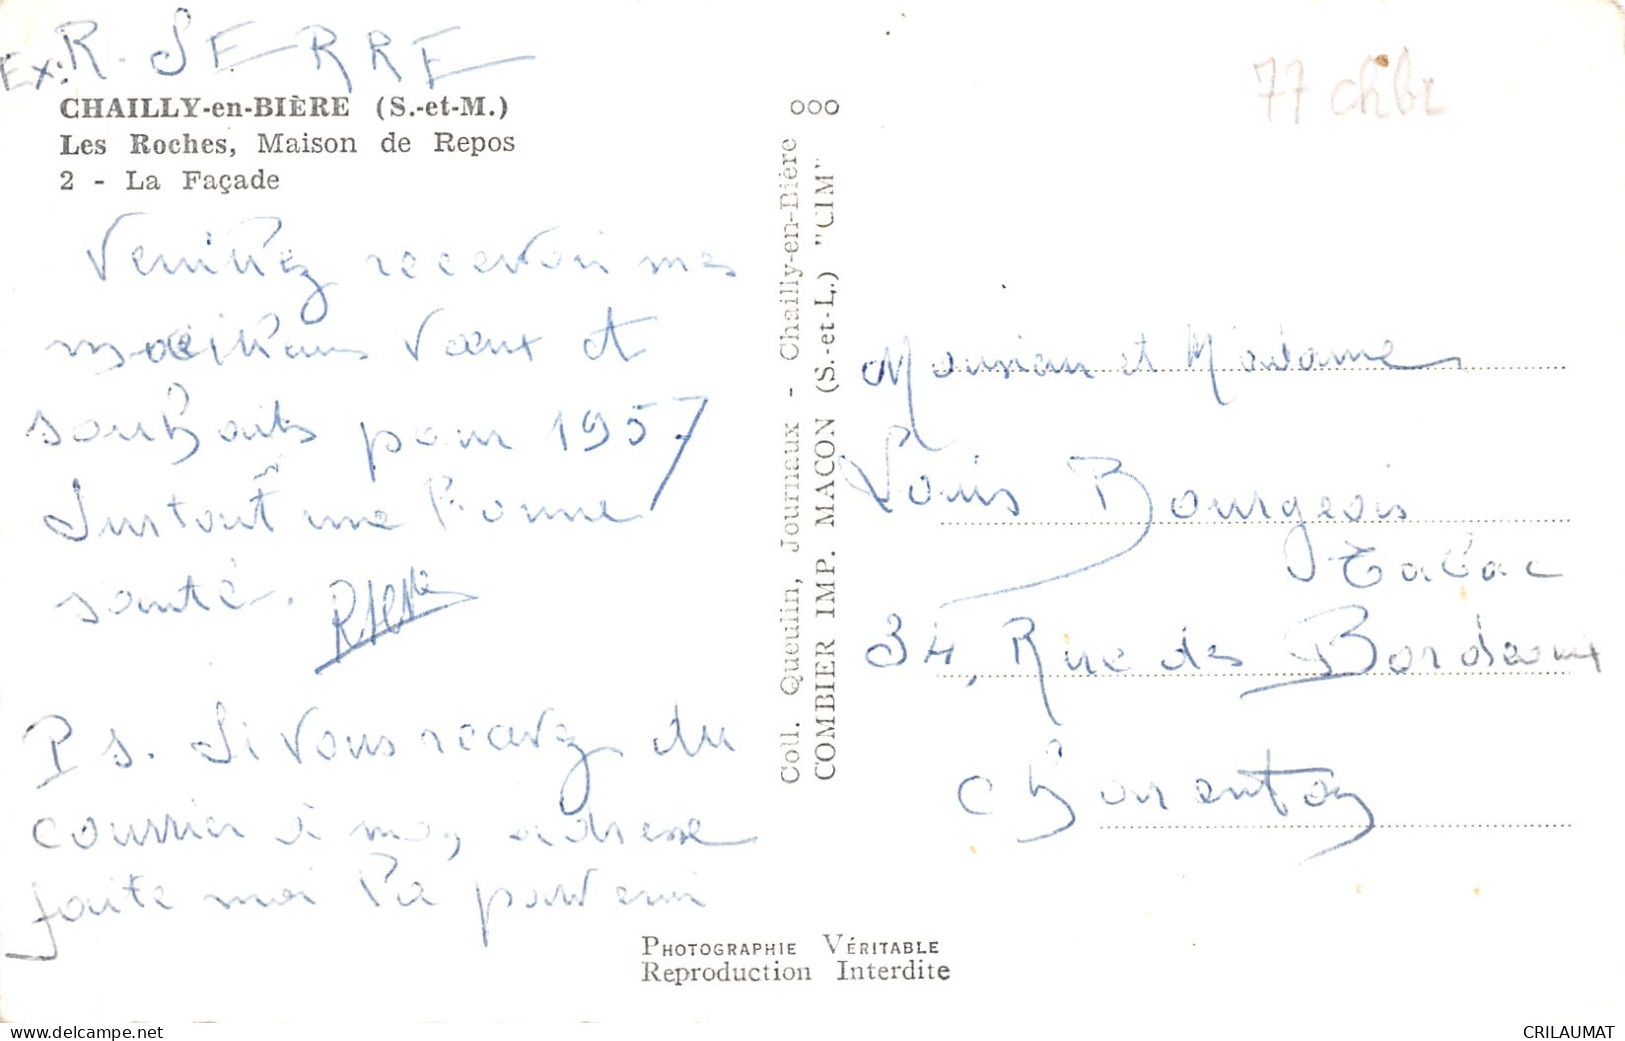 Ex: R. SERRE
CHAILLY-en-BIÈRE (S.-et-M.)
Les Roches, Maison de Repos
2 - La Façade
Veuillez recevoir mes
meilleurs vœux et
souhaits pour 1957
Surtout une bonne
santé.
P S. Si vous recevez du
courrier à mon adresse
faite moi le parvenir
Coll. Queulin, Journaux - Chailly-en-Bière
COMBIER IMP. MACON (S.-et-L.) "CIM"
000
77 chbr
Monsieur et Madame
Louis Bourgeois
Tabac
34, Rue des Bordeaux
Charenton
PHOTOGRAPHIE VÉRITABLE
Reproduction Interdite
www.delcampe.net
CRILAUMAT